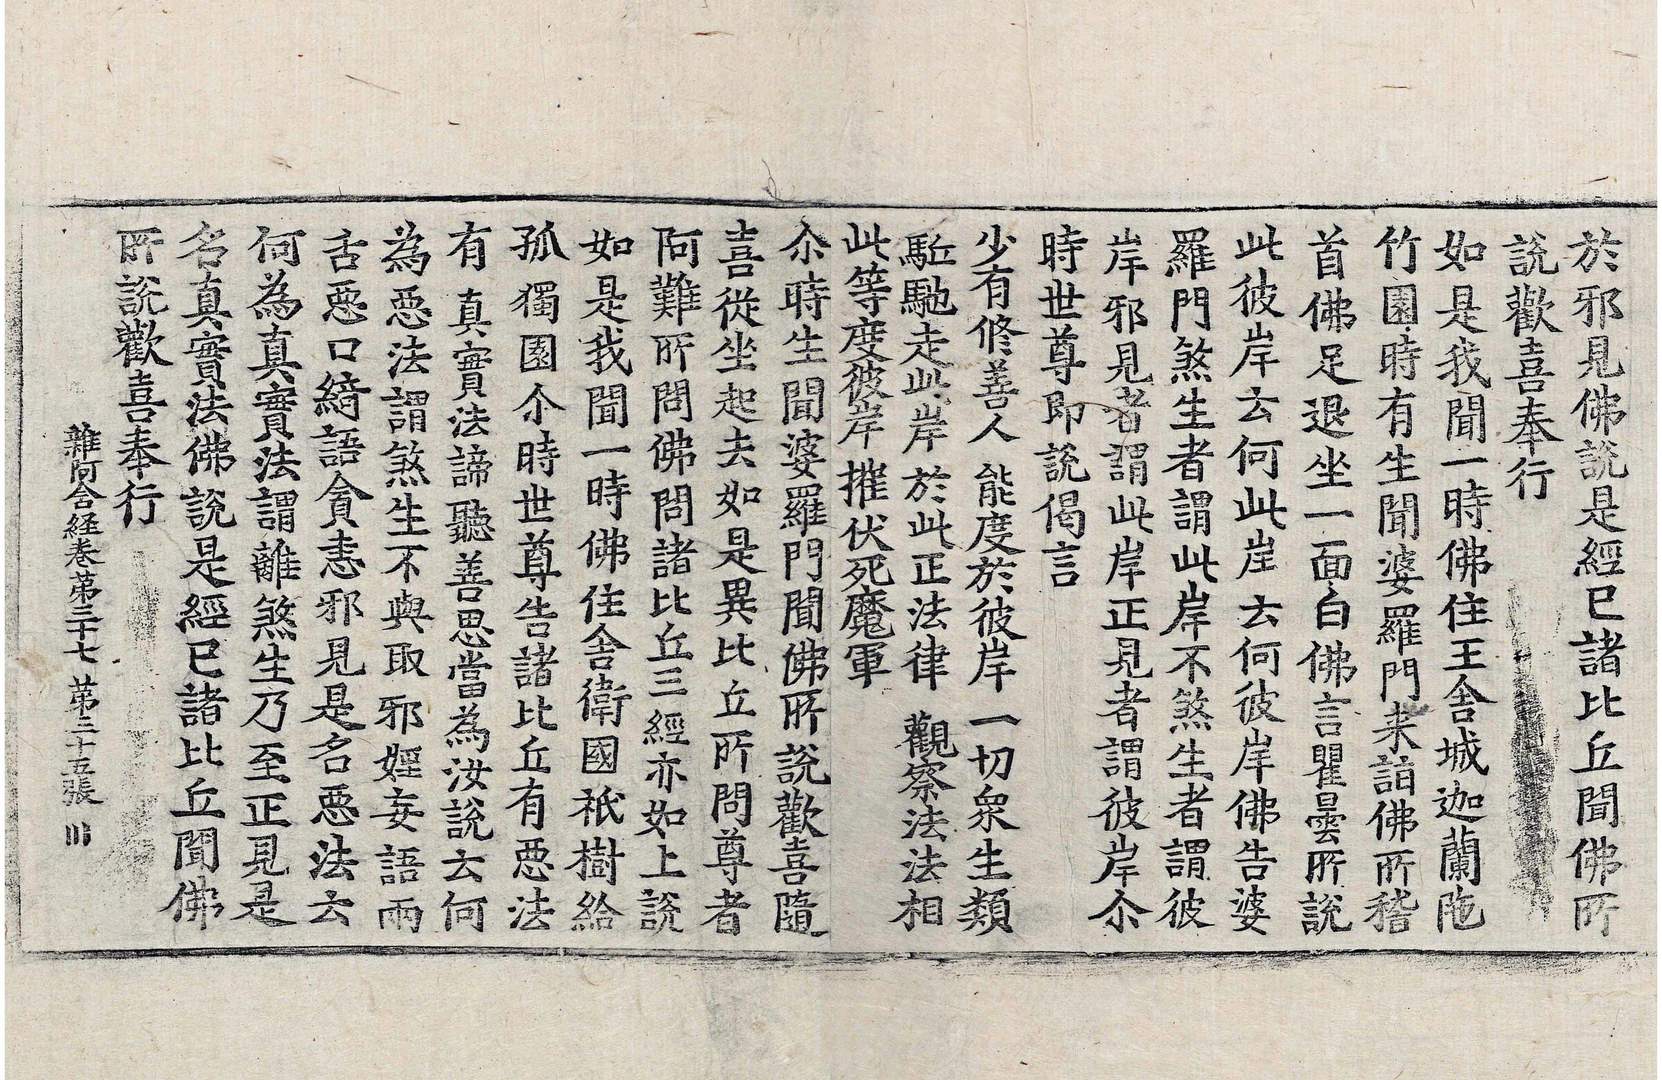 於邪見佛說是經已諸比丘聞佛所
說歡喜奉行
如是我聞一時佛住王舍城迦蘭陁
竹園時有生聞婆羅門来詣佛所稽
首佛足退坐一面白佛言瞿曇所說
此彼岸云何此岸云何彼岸佛告婆
羅門煞生者謂此岸不煞生者謂彼
岸邪見者謂此岸正見者謂彼岸尒
時世尊即說偈言
少有修善人 能度於彼岸 一切衆生類
駈馳走此岸 於此正法律 觀察法法相
此等度彼岸 摧伏死魔軍
尒時生聞婆羅門聞佛所說歡喜隨
喜從坐起去如是異比丘所問尊者
阿難所問佛問諸比丘三經亦如上說
如是我聞一時佛住舍衛國祇樹給
孤獨園尒時世尊告諸比丘有惡法
有真實法諦聽善思當為汝說云何
為惡法謂煞生不與取邪婬妄語兩
舌惡口綺語貪恚邪見是名惡法云
何為真實法謂離煞生乃至正見是
名真實法佛說是經已諸比丘聞佛
所說歡喜奉行
雜阿含經卷第三十七 第三十五張